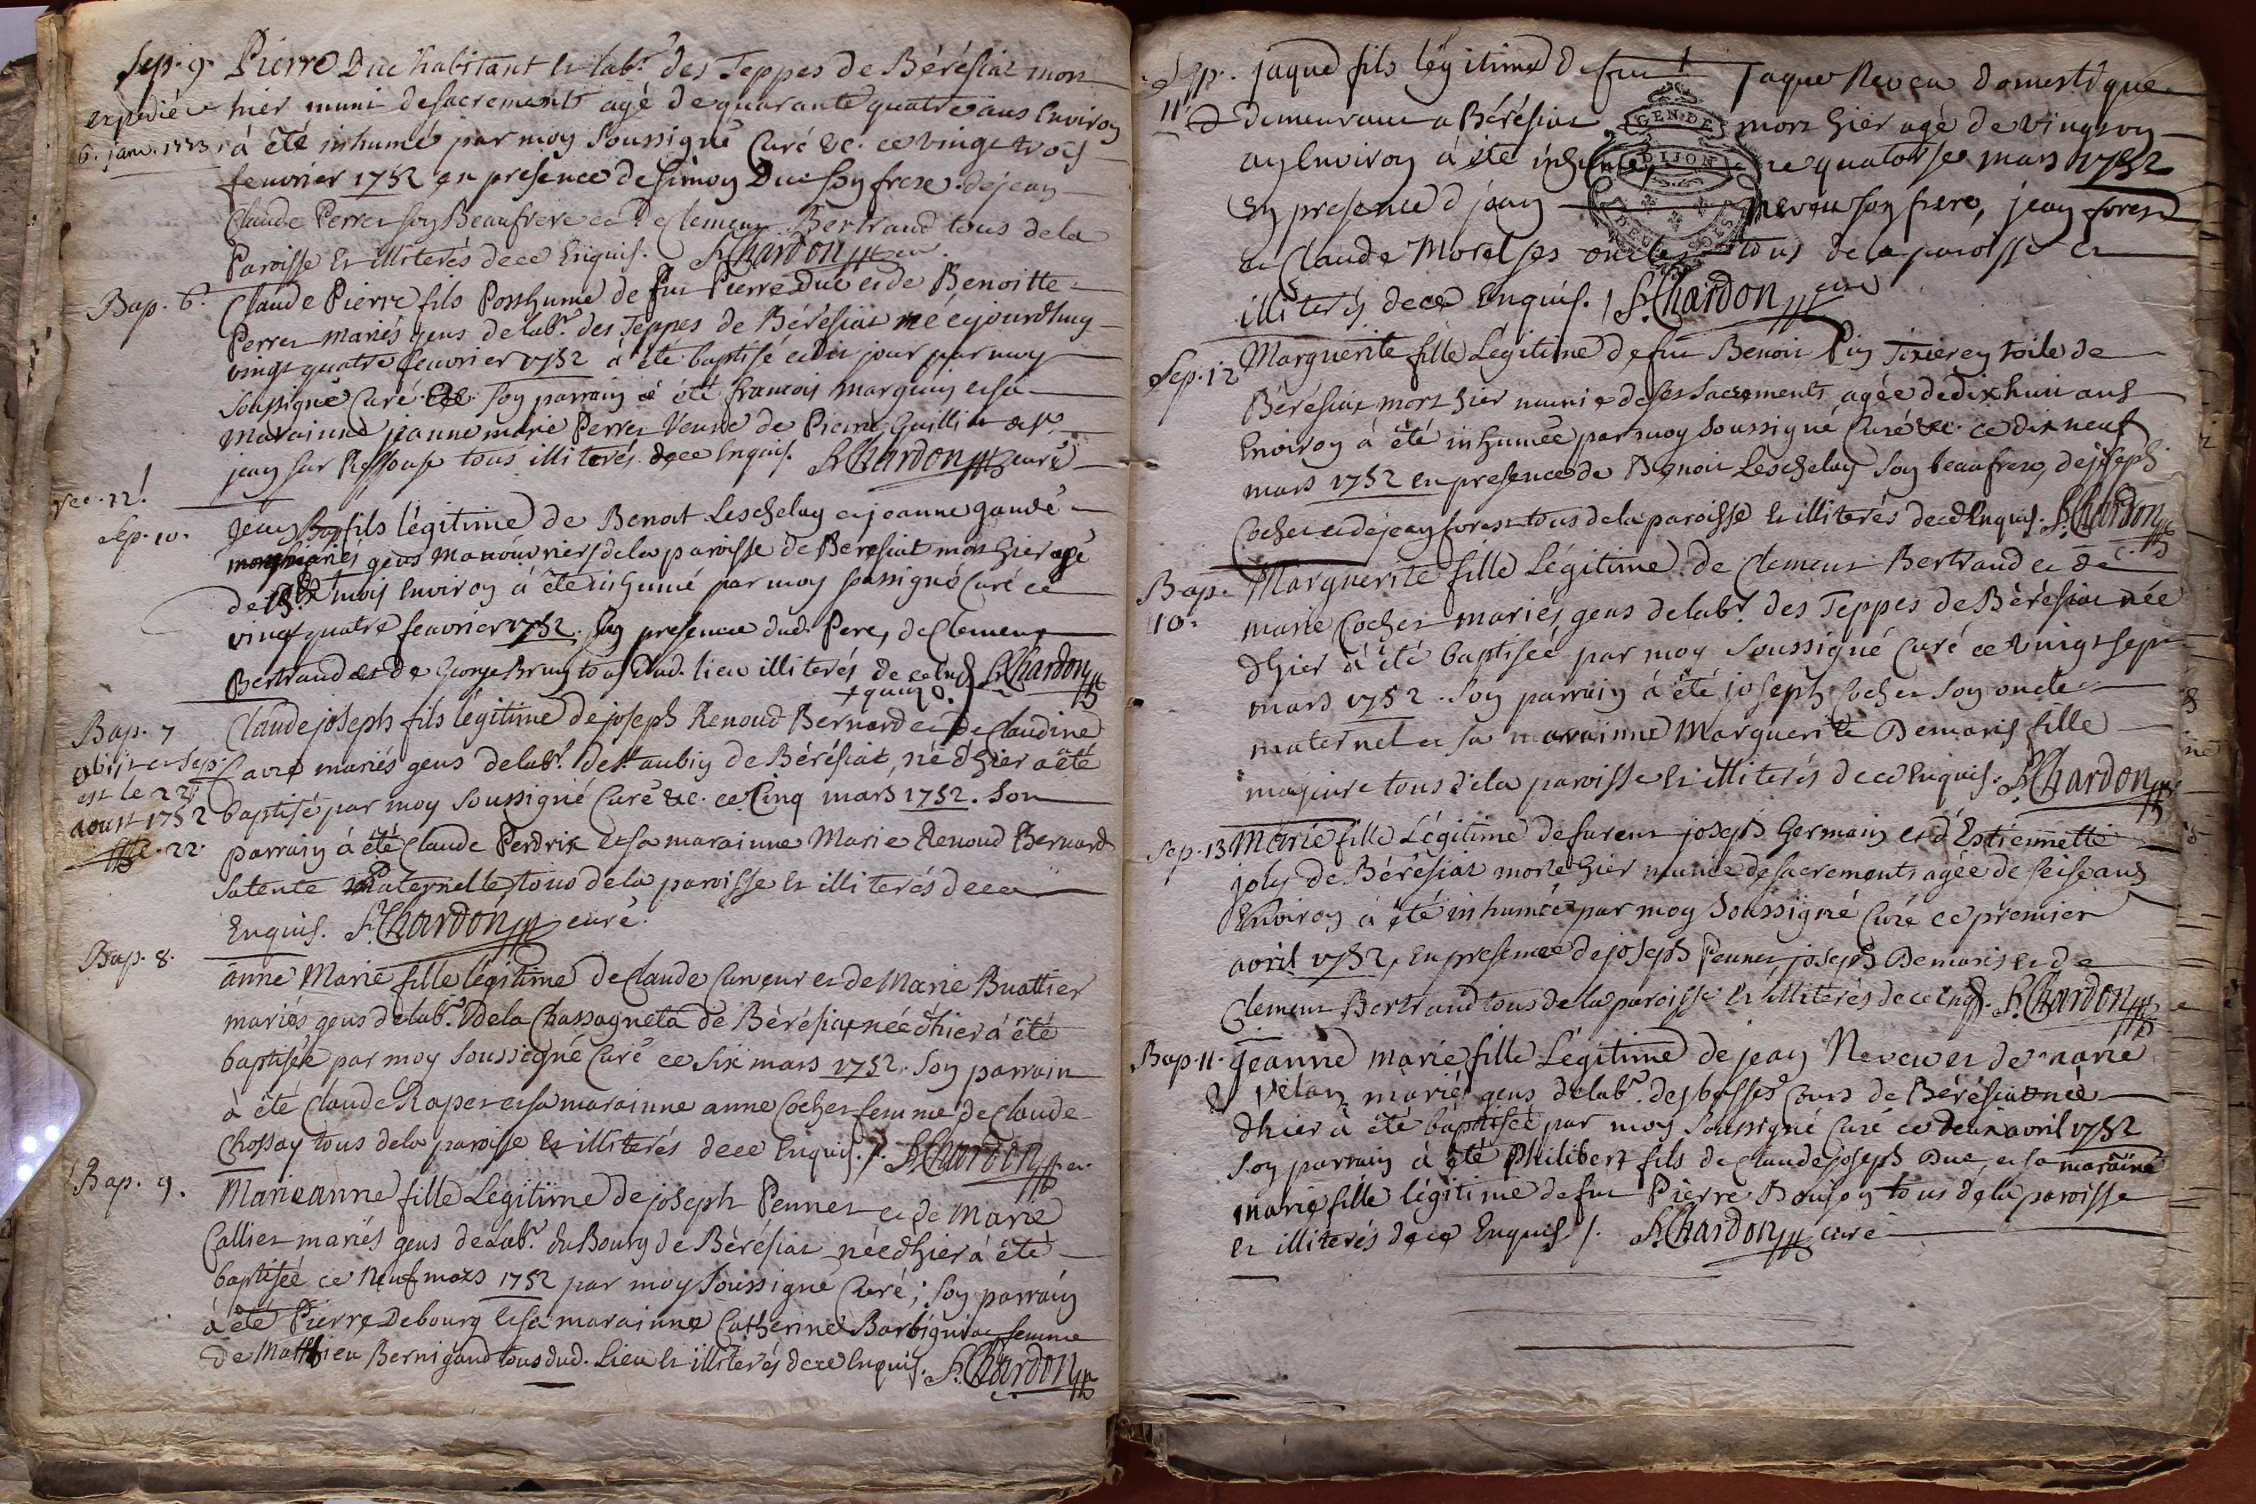 Sep. 9. Pierre Duc habitant et lab.r des Teppes de Bérésiat mort
expedié hier muni de sacrements agé de quarante quatre ans Environ
6. janv. 1773 à été inhumé par moy soussigné Curé &c. ce vingt trois
feuvrier 1752 en presence de Simon Duc son frere de jean
Claude Perret son Beaufrere et De Clement Bertrand tous de la
Paroisse et illiterés de ce Enquis. Chardon curé
Bap. 6. Claude Pierre fils Posthume de feu Pierre Duc et de Benoitte
Perret mariés gens de lab.r des Teppes de Bérésiat né cejourdhuy
vingt quatre feuvrier 1752 à été baptisé ledit jour par moy
soussigné Curé &c. son parrain à été francois marguin et sa
maraine jeanne marie Perret Veuve de Pierre Guillin de St
jean sur Ressouse tous illiterés de ce Enquis. Chardon curé
Sep. 10. Jean fils légitime de Benoit Leschelon et jeanne gaudé
mariés gens manouvriers de la paroisse de Beresiat mort hier agé
de mois Environ à été inhumé par moy soussigné Curé ce
vingt quatre feuvrier 1752. En presence dud. Pere, de Clement
Bertrand et de George Brun tous dud. lieu illiterés de ce Chardon
Bap. 7 Claude joseph fils légitime de joseph Renoud Bernard et de Claudine
obiit et Sep. mariés gens de lab.r de St aubin de Bérésiat, né d'hier a été
est le 22
aoust 1752 baptisé par moy soussigné Curé &c. ce Cinq mars 1752. Son
22. parrain à été Claude Perdrix et sa marainne Marie Renoud Bernard
sa tente Paternelle, tous de la paroisse et illiterés de ce
Enquis. Chardon curé.
Bap. 8. anne Marie fille légitime de Claude Curveur et de Marie Buattier
mariés gens de lab.r de la Chassagneta de Bérésiat née d'hier à été
baptisée par moy soussigné Curé ce six mars 1752. Son parrain
à été Claude Raper et sa marainne anne Cochet femme de Claude
Chossay tous de la paroisse et illiterés de ce Enquis. Chardon
Bap. 9. Marieanne fille Legitime de joseph Pennet et de Marie
Callier mariés gens de Lab.r du Bourg de Bérésiat née d'hier à été
baptisée ce Neuf mars 1752 par moy soussigné Curé; son parrain
à été Pierre Debourg et sa marainne Catherine femme
de Matthieu Bernigaud tous dud. Lieu et illiterés de ce Enquis. Chardon
Sep. jaque fils légitime De feu Jaque Neveu domestique
11 demeurant a Bérésiat mort hier agé de vingt
an Environ à été ce quatorse mars 1752
En presence d jean neveu son frere, jean forest
et Claude Morel ses oncles tous de la paroisse et
illiterés de ce Enquis. Chardon curé
GEN. DE
DIJON
Sep. 12 Marguerite fille Légitime de feu Benoit Pin Tixier en toile de
Bérésiat mort hier munie de ses sacrements agée de dixhuit ans
Environ à été inhumée par moy soussigné Curé &c. ce dix neuf
mars 1752 en presence de Benoit Leschelon son beaufrere, de joseph
Cochet et de jean forest tous de la paroisse et illiterés de ce Enquis. Chardon
Bap. Marguerite fille Légitime de Clement Bertrand et de
10. marie Cochet mariés gens de lab.r des Teppes de Bérésiat née
dhier à été baptisée par moy soussigné Curé ce vingt sept
mars 1752. Son parrain à été joseph Cochet son oncle
maternel et sa marainne Marguerite Demaris fille
majeure tous de la paroisse et illiterés de ce Enquis. Chardon
Sep. 13 Marie fille Légitime de furent joseph Germain et d'Estiennette
Joly de Bérésiat morte hier munie de sacrements agée de seise ans
Environ à été inhumée par moy soussigné Curé ce premier
avril 1752, en presence de joseph Pennet, joseph Demaris et de
Clement Bertrand tous de la paroisse et illiterés de ce Enq. Chardon
Bap. 11. Jeanne marie fille Légitime de jean Neveu et de marie
Velan mariés gens de lab.r des basses Cours de Bérésiat née
dhier à été baptisée par moy soussigné Curé ce deux avril 1752
Son parrain à été Philibert fils de Claude joseph Duc, et sa maraine
marie fille légitime de feu Pierre Boujon tous de la paroisse
et illiterés de ce Enquis. Chardon curé